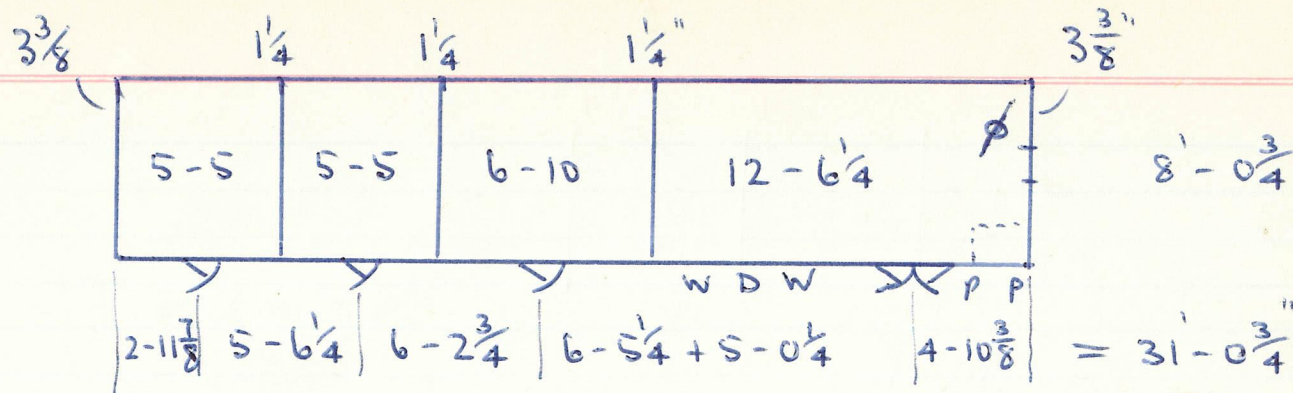 3 3/8 1 1/4 1 1/4 1 1/4" 3 3/8"
5-5 5-5 6-10 12-6 1/4 ø 8'-0 3/4
W D W P P
2-11 7/8 5-6 1/4 6-2 3/4 6-5 1/4 + 5-0 1/4 4-10 3/8 = 31'-0 3/4"